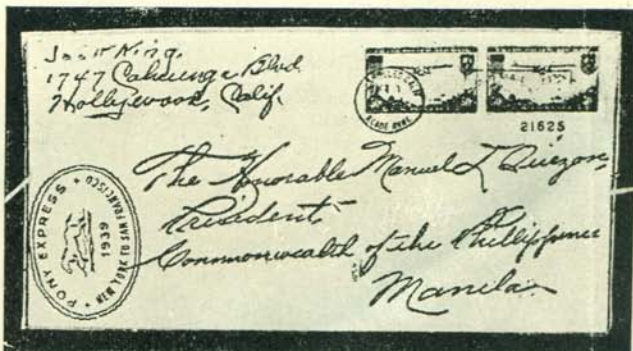 King.
1747 Cahuenga Blvd.
Hollywood, Calif.
ARCADE ANNEX
21625
The Honorable Manuel L Quezon,
President
Commonwealth of the Phillippines
Manila
PONY EXPRESS
1939
NEW YORK TO SAN FRANCISCO